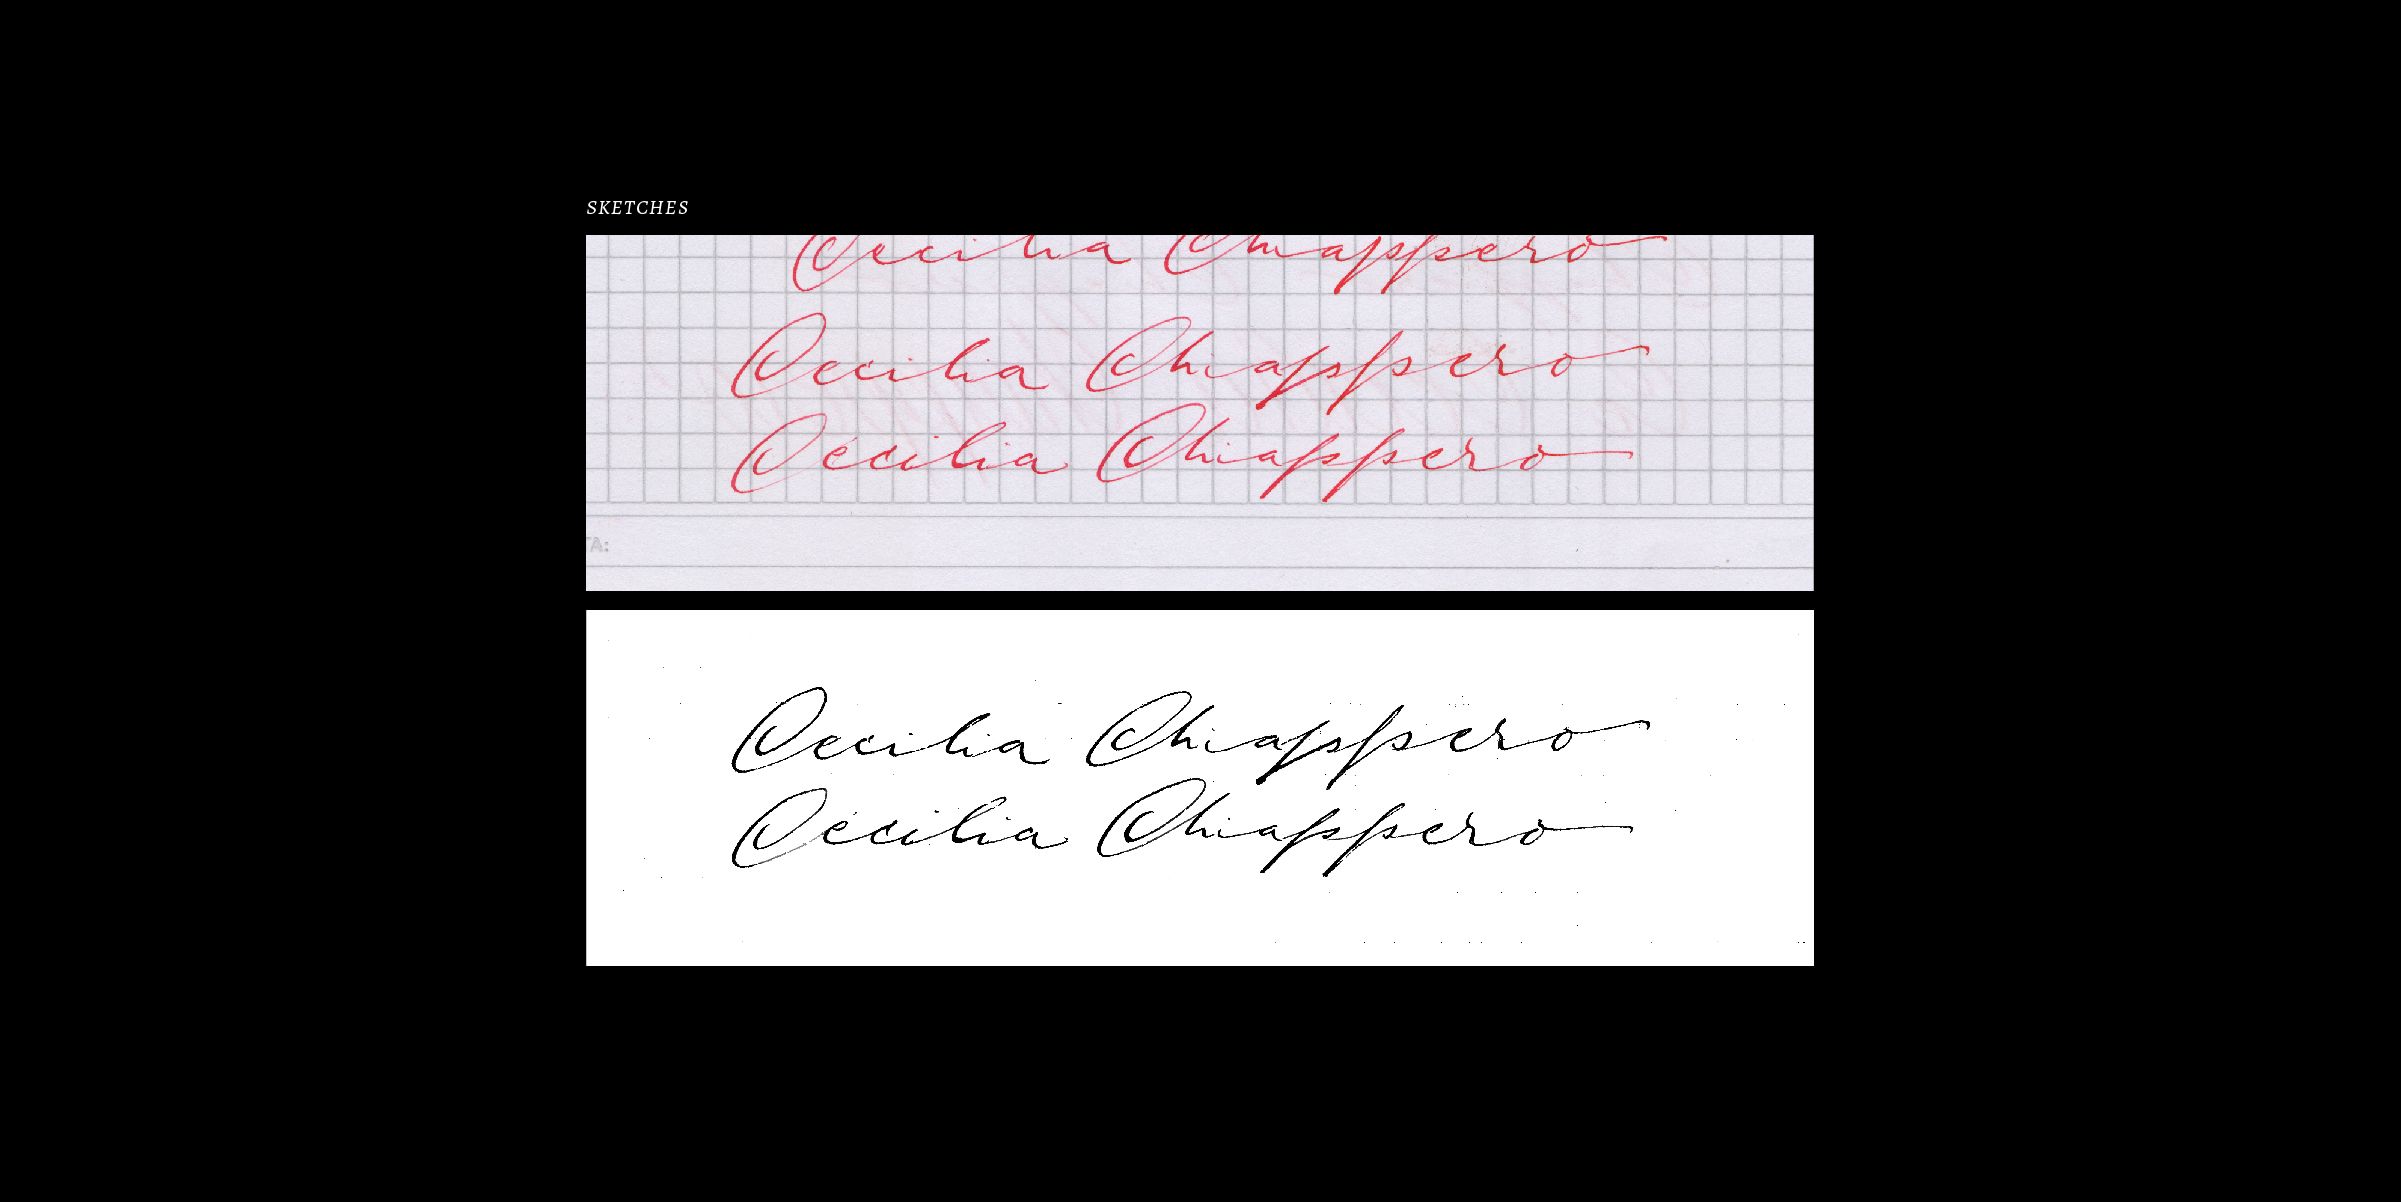 SKETCHES
Cecilia Chiappero
Cecilia Chiappero
Cecilia Chiappero
TA:
Cecilia Chiappero
Cecilia Chiappero